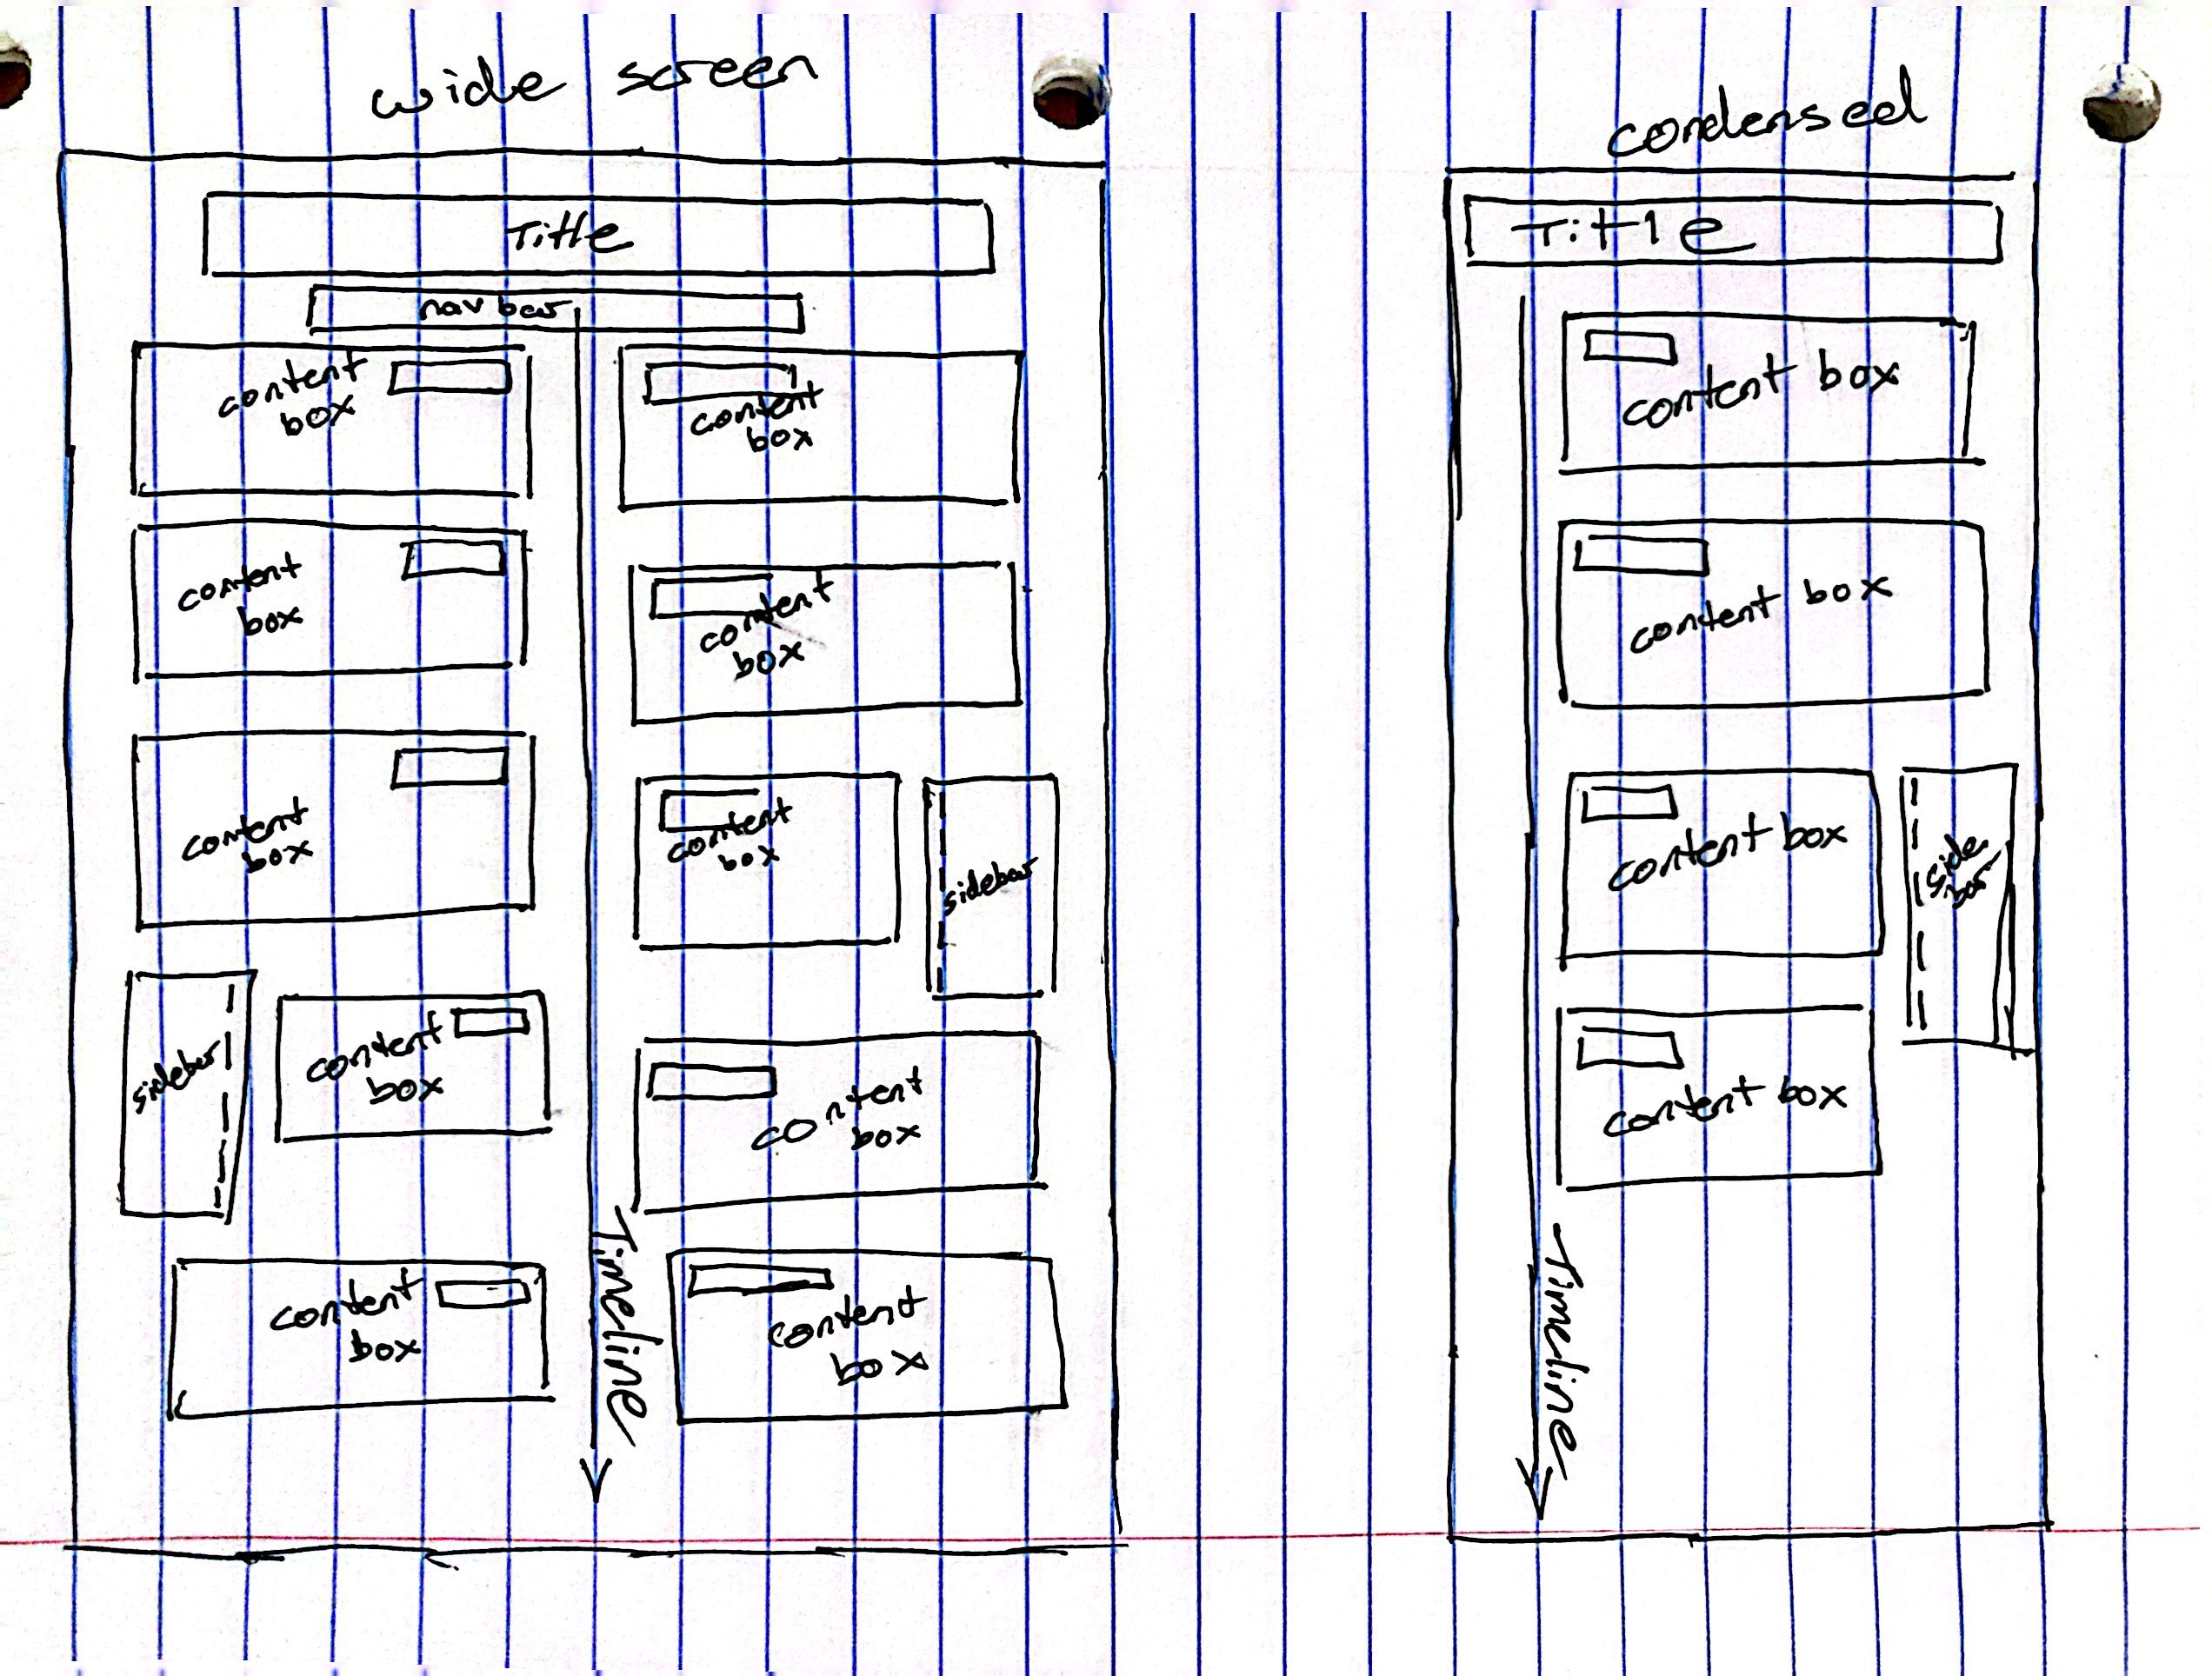 wide screen
Title
nav bar
content
box
content
box
content
box
content
box
content
box
content
box
content
box
sidebar
sidebar
content
box
content
box
content
box
Timeline
condensed
Title
content box
content box
content box
side
bar
content box
Timeline